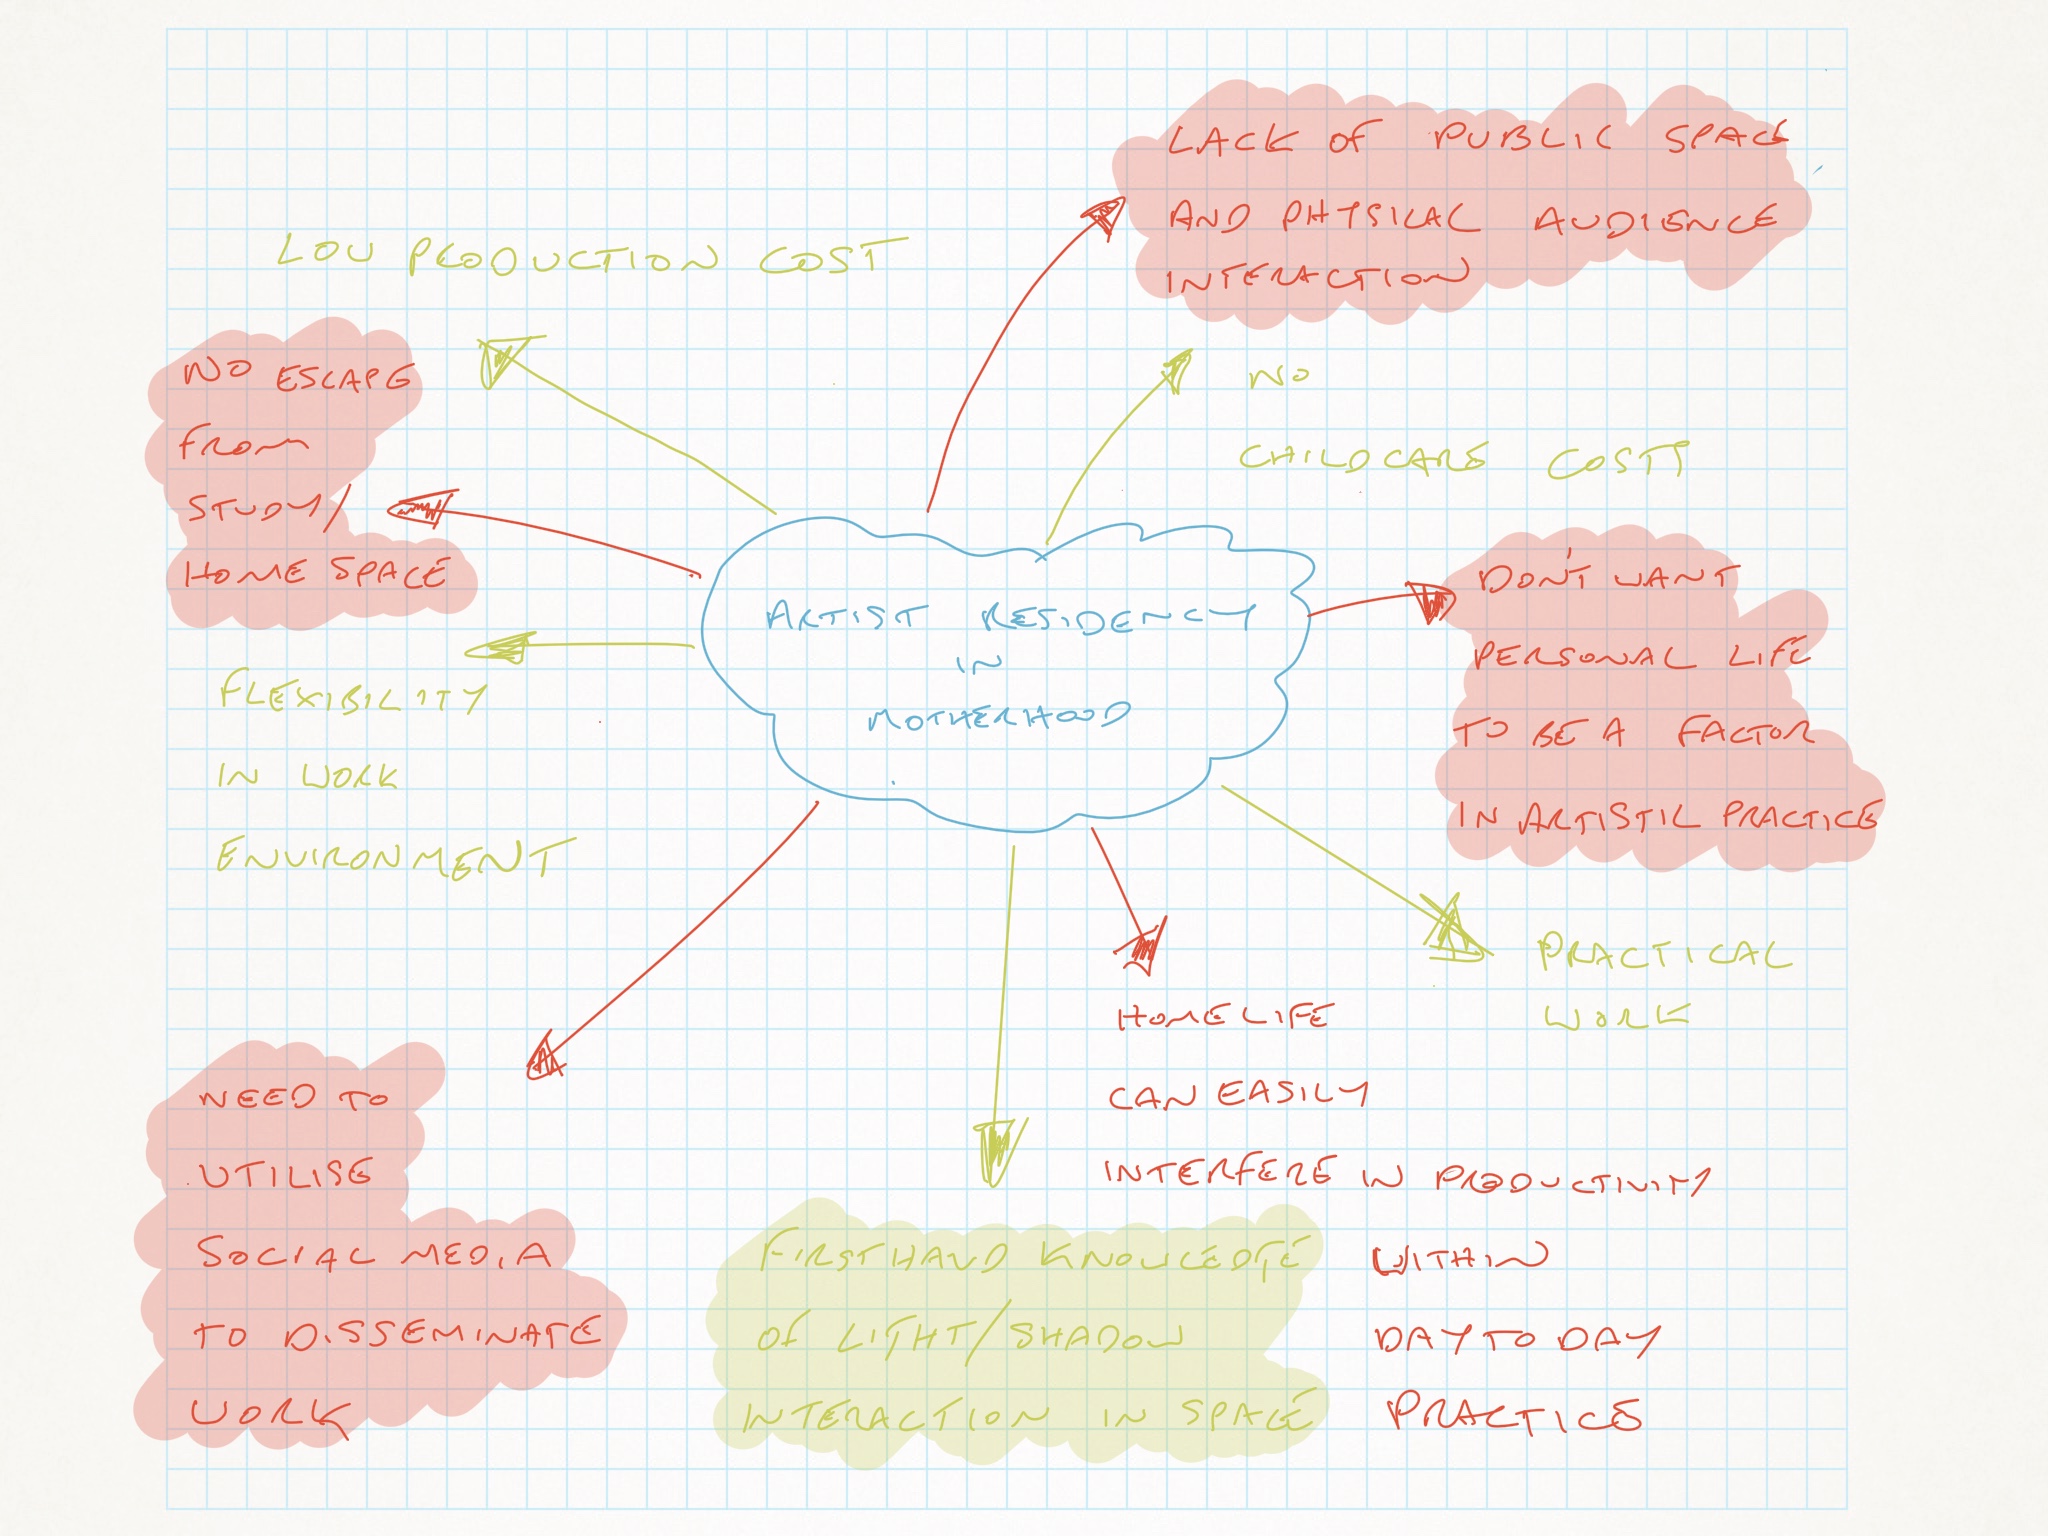 LACK OF PUBLIC SPACE
AND PHYSICAL AUDIENCE
INTERACTION
LOW PRODUCTION COST
NO ESCAPE
FROM
STUDY/
HOME SPACE
NO
CHILDCARE COSTS
ARTIST RESIDENCY
IN
MOTHERHOOD
DON'T WANT
PERSONAL LIFE
TO BE A FACTOR
IN ARTISTIC PRACTICE
FLEXIBILITY
IN WORK
ENVIRONMENT
PRACTICAL
WORK
HOME LIFE
CAN EASILY
INTERFERE IN PRODUCTIVITY
WITHIN
DAY TO DAY
PRACTICE
NEED TO
UTILISE
SOCIAL MEDIA
TO DISSEMINATE
WORK
FIRSTHAND KNOWLEDGE
OF LIGHT/SHADOW
INTERACTION IN SPACE